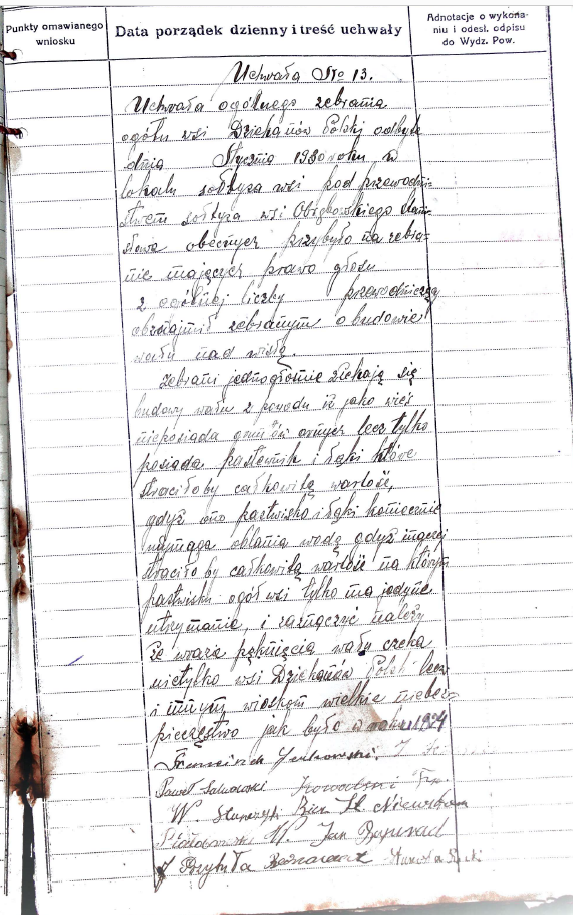 Punkty omawianego
wniosku
Data porządek dzienny i treść uchwały
Adnotacje o wykona-
niu i odesł. odpisu
do Wydz. Pow.
Uchwała No 13.
Uchwała ogólnego zebrania
ogółu wsi Dziekanów Polski odbyte
dnia Stycznia 1930 roku w
lokalu sołtysa wsi pod przewodni-
stwem sołtysa wsi
sława obecnych przybyło na zebra-
nie mających prawo głosu
z ogólnej liczby przewodniczący
obznajmił zebranym o budowie
wału nad wisłą.
Zebrani jednogłośnie zżekają się
budowy wału z powodu iż jako wieś
nieposiada ornych lecz tylko
posiada pastewnik i łąki które
straciłoby całkowitą wartość,
gdyż ono pastwisko i łąki koniecznie
wymaga oblania wodą gdyż inaczej
straciłoby całkowitą wartość na którym
pastwisku ogół wsi tylko ma jedyne
utrzymanie i zaznaczyć należy
że wrazie pęknięcia wału czeka
nietylko wsi Dziekanów Polski lecz
i innym wioskom wielkie niebez-
pieczęstwo jak było w roku 1924
Paweł
W.
W. Jan
Przybyła